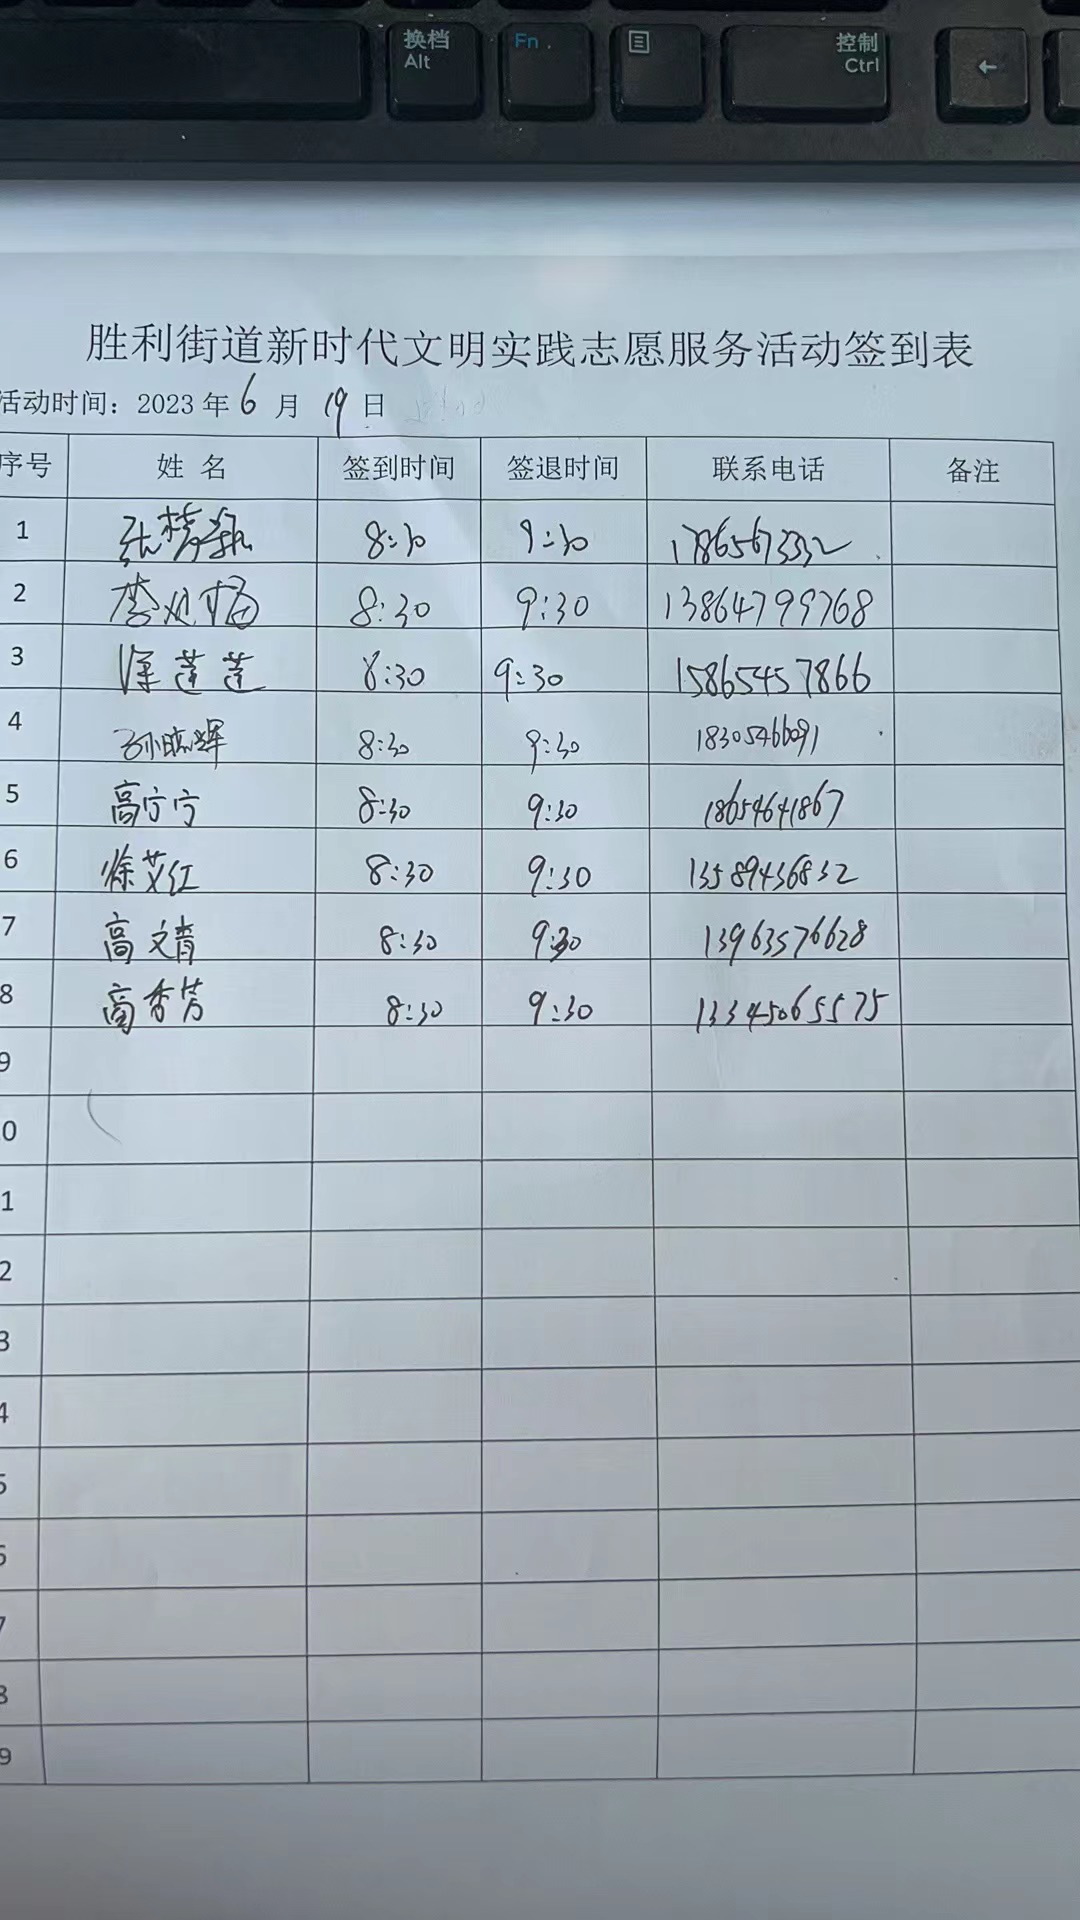 换档 Fn 控制
Alt Ctrl ←
胜利街道新时代文明实践志愿服务活动签到表
活动时间：2023年6月19日
序号 姓名 签到时间 签退时间 联系电话 备注
1 张 8:30 9:30
2 李 8:30 9:30 13864799768
3 徐莲莲 8:30 9:30 15865457866
4 孙晓辉 8:30 9:30 18305466091
5 高宁宁 8:30 9:30 18654641867
6 徐艾红 8:30 9:30 13589436832
7 高文青 8:30 9:30 13963576628
8 高秀芳 8:30 9:30 13345065575
9
0
1
2
3
4
5
6
7
8
9